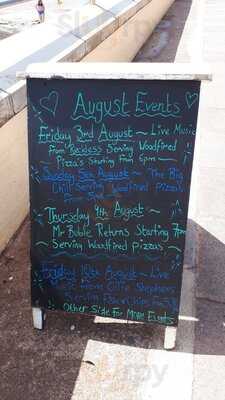 August Events
Friday 3rd August ~ Live Music
from Reckless Serving Woodfired
Pizza's Starting from 6pm
Sunday 5th August ~ The Big
Chill Serving Woodfired Pizzas
from 5pm
Thursday 9th August ~
Mr Buble Returns Starting 7pm
~ Serving Woodfired Pizzas ~
Friday 10th August ~ Live
Music from Ollie Stephens
Serving from
Other Side For More Events